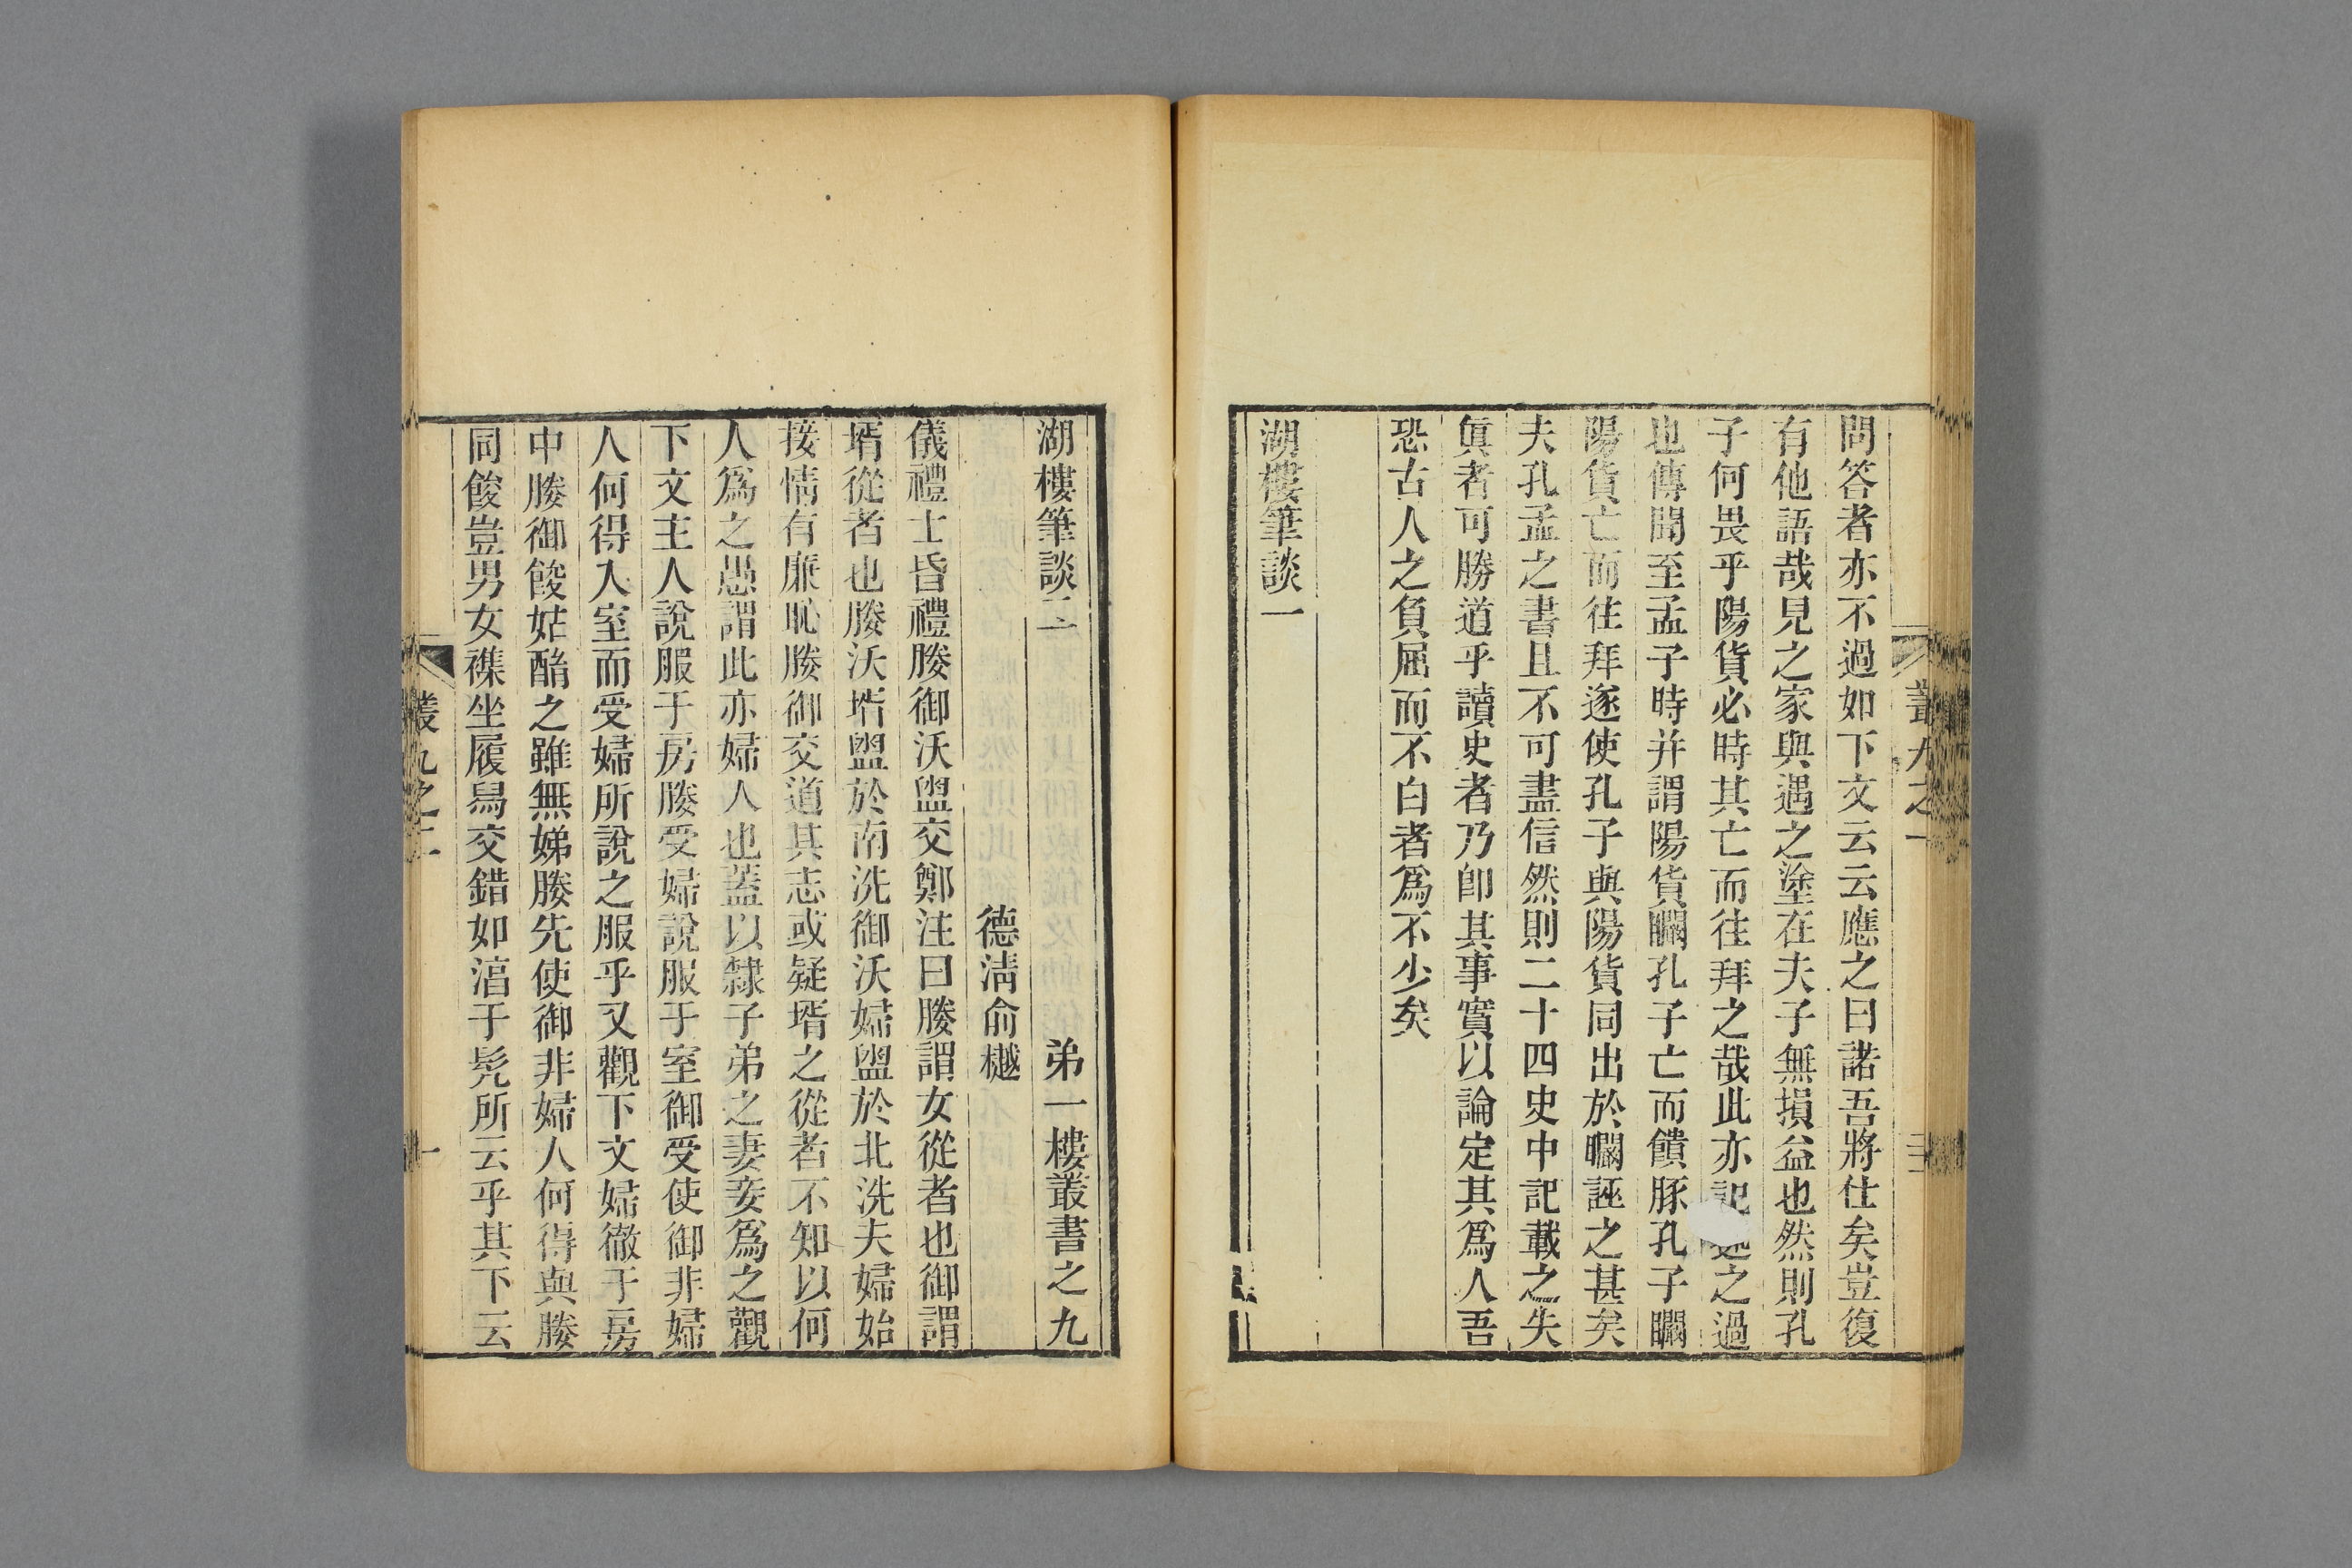 問答者亦不過如下文云云應之曰諾吾將仕矣豈復
有他語哉見之家與遇之塗在夫子無損益也然則孔
子何畏乎陽貨必時其亡而往拜之哉此亦記之過
也傳聞至孟子時并謂陽貨矙孔子亡而饋豚孔子矙
陽貨亡而往拜遂使孔子與陽貨同出於矙誣之甚矣
夫孔孟之書且不可盡信然則二十四史中記載之失
眞者可勝道乎讀史者乃卽其事實以論定其爲人吾
恐古人之負屈而不白者爲不少矣
湖樓筆談一
叢九之一
湖樓筆談二 弟一樓叢書之九
德淸俞樾
儀禮士昏禮媵御沃盥交鄭注曰媵謂女從者也御謂
壻從者也媵沃壻盥於南洗御沃婦盥於北洗夫婦始
接情有廉恥媵御交道其志或疑壻之從者不知以何
人爲之愚謂此亦婦人也蓋以隸子弟之妻妾爲之觀
下文主人說服于房媵受婦說服于室御受使御非婦
人何得入室而受婦所說之服乎又觀下文婦徹于房
中媵御餕姑酳之雖無娣媵先使御非婦人何得與媵
同餕豈男女襍坐履舄交錯如湻于髠所云乎其下云
叢九之二
一